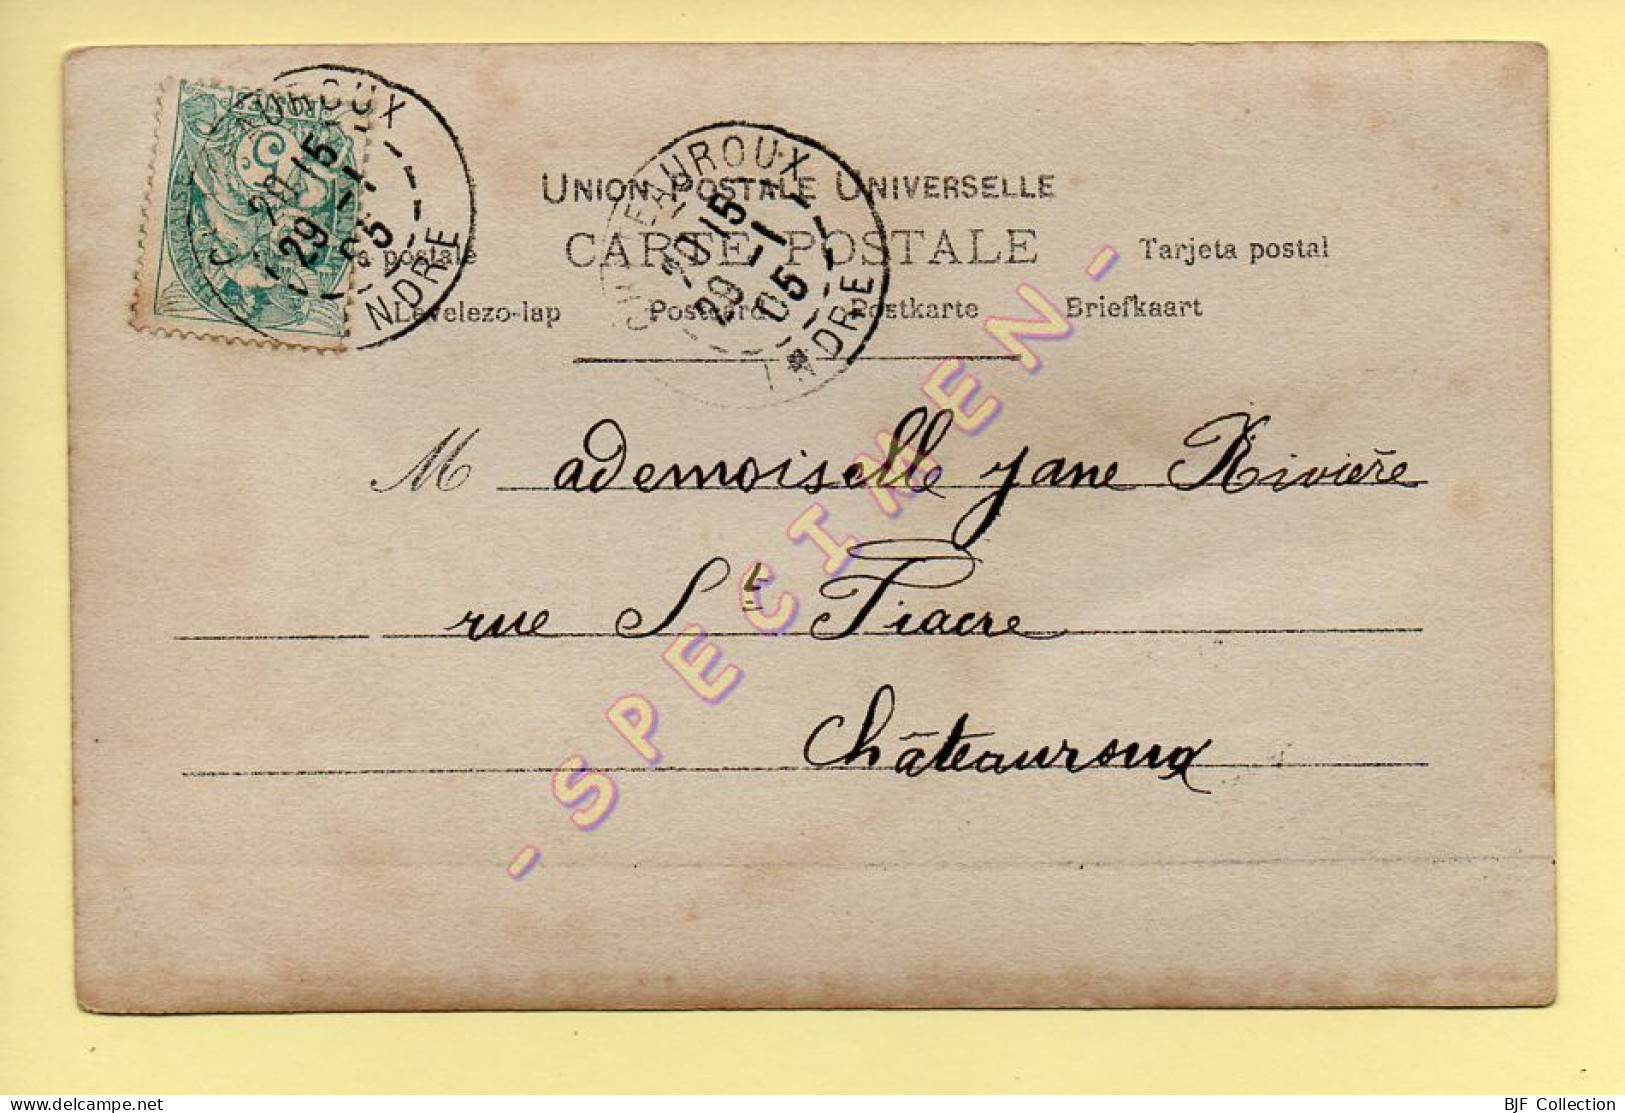 CHATEAUROUX
20 15
29 -1
05
INDRE
CHATEAUROUX
20 15
29 -1
05
INDRE
UNION POSTALE UNIVERSELLE
CARTE POSTALE
Tarjeta postal
postale
Levelezo-lap Postcard Postkarte Briefkaart
Mademoiselle Jane Rivière
rue St Fiacre
Châteauroux
- SPECIMEN -
BJF Collection